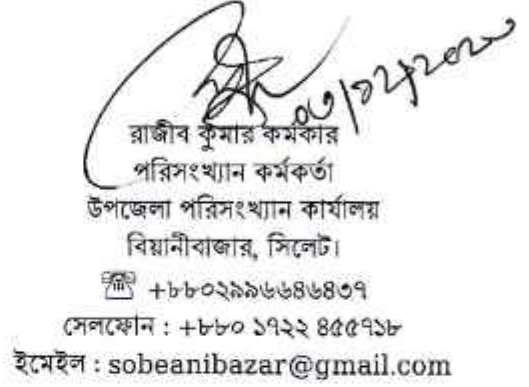 রাজীব কুমার কর্মকার
পরিসংখ্যান কর্মকর্তা
উপজেলা পরিসংখ্যান কার্যালয়
বিয়ানীবাজার, সিলেট।
☏ +৮৮০২৯৯৬৬৪৬৪৩৭
সেলফোন : +৮৮০ ১৭২২ ৪৫৫৭১৮
ইমেইল : sobeanibazar@gmail.com